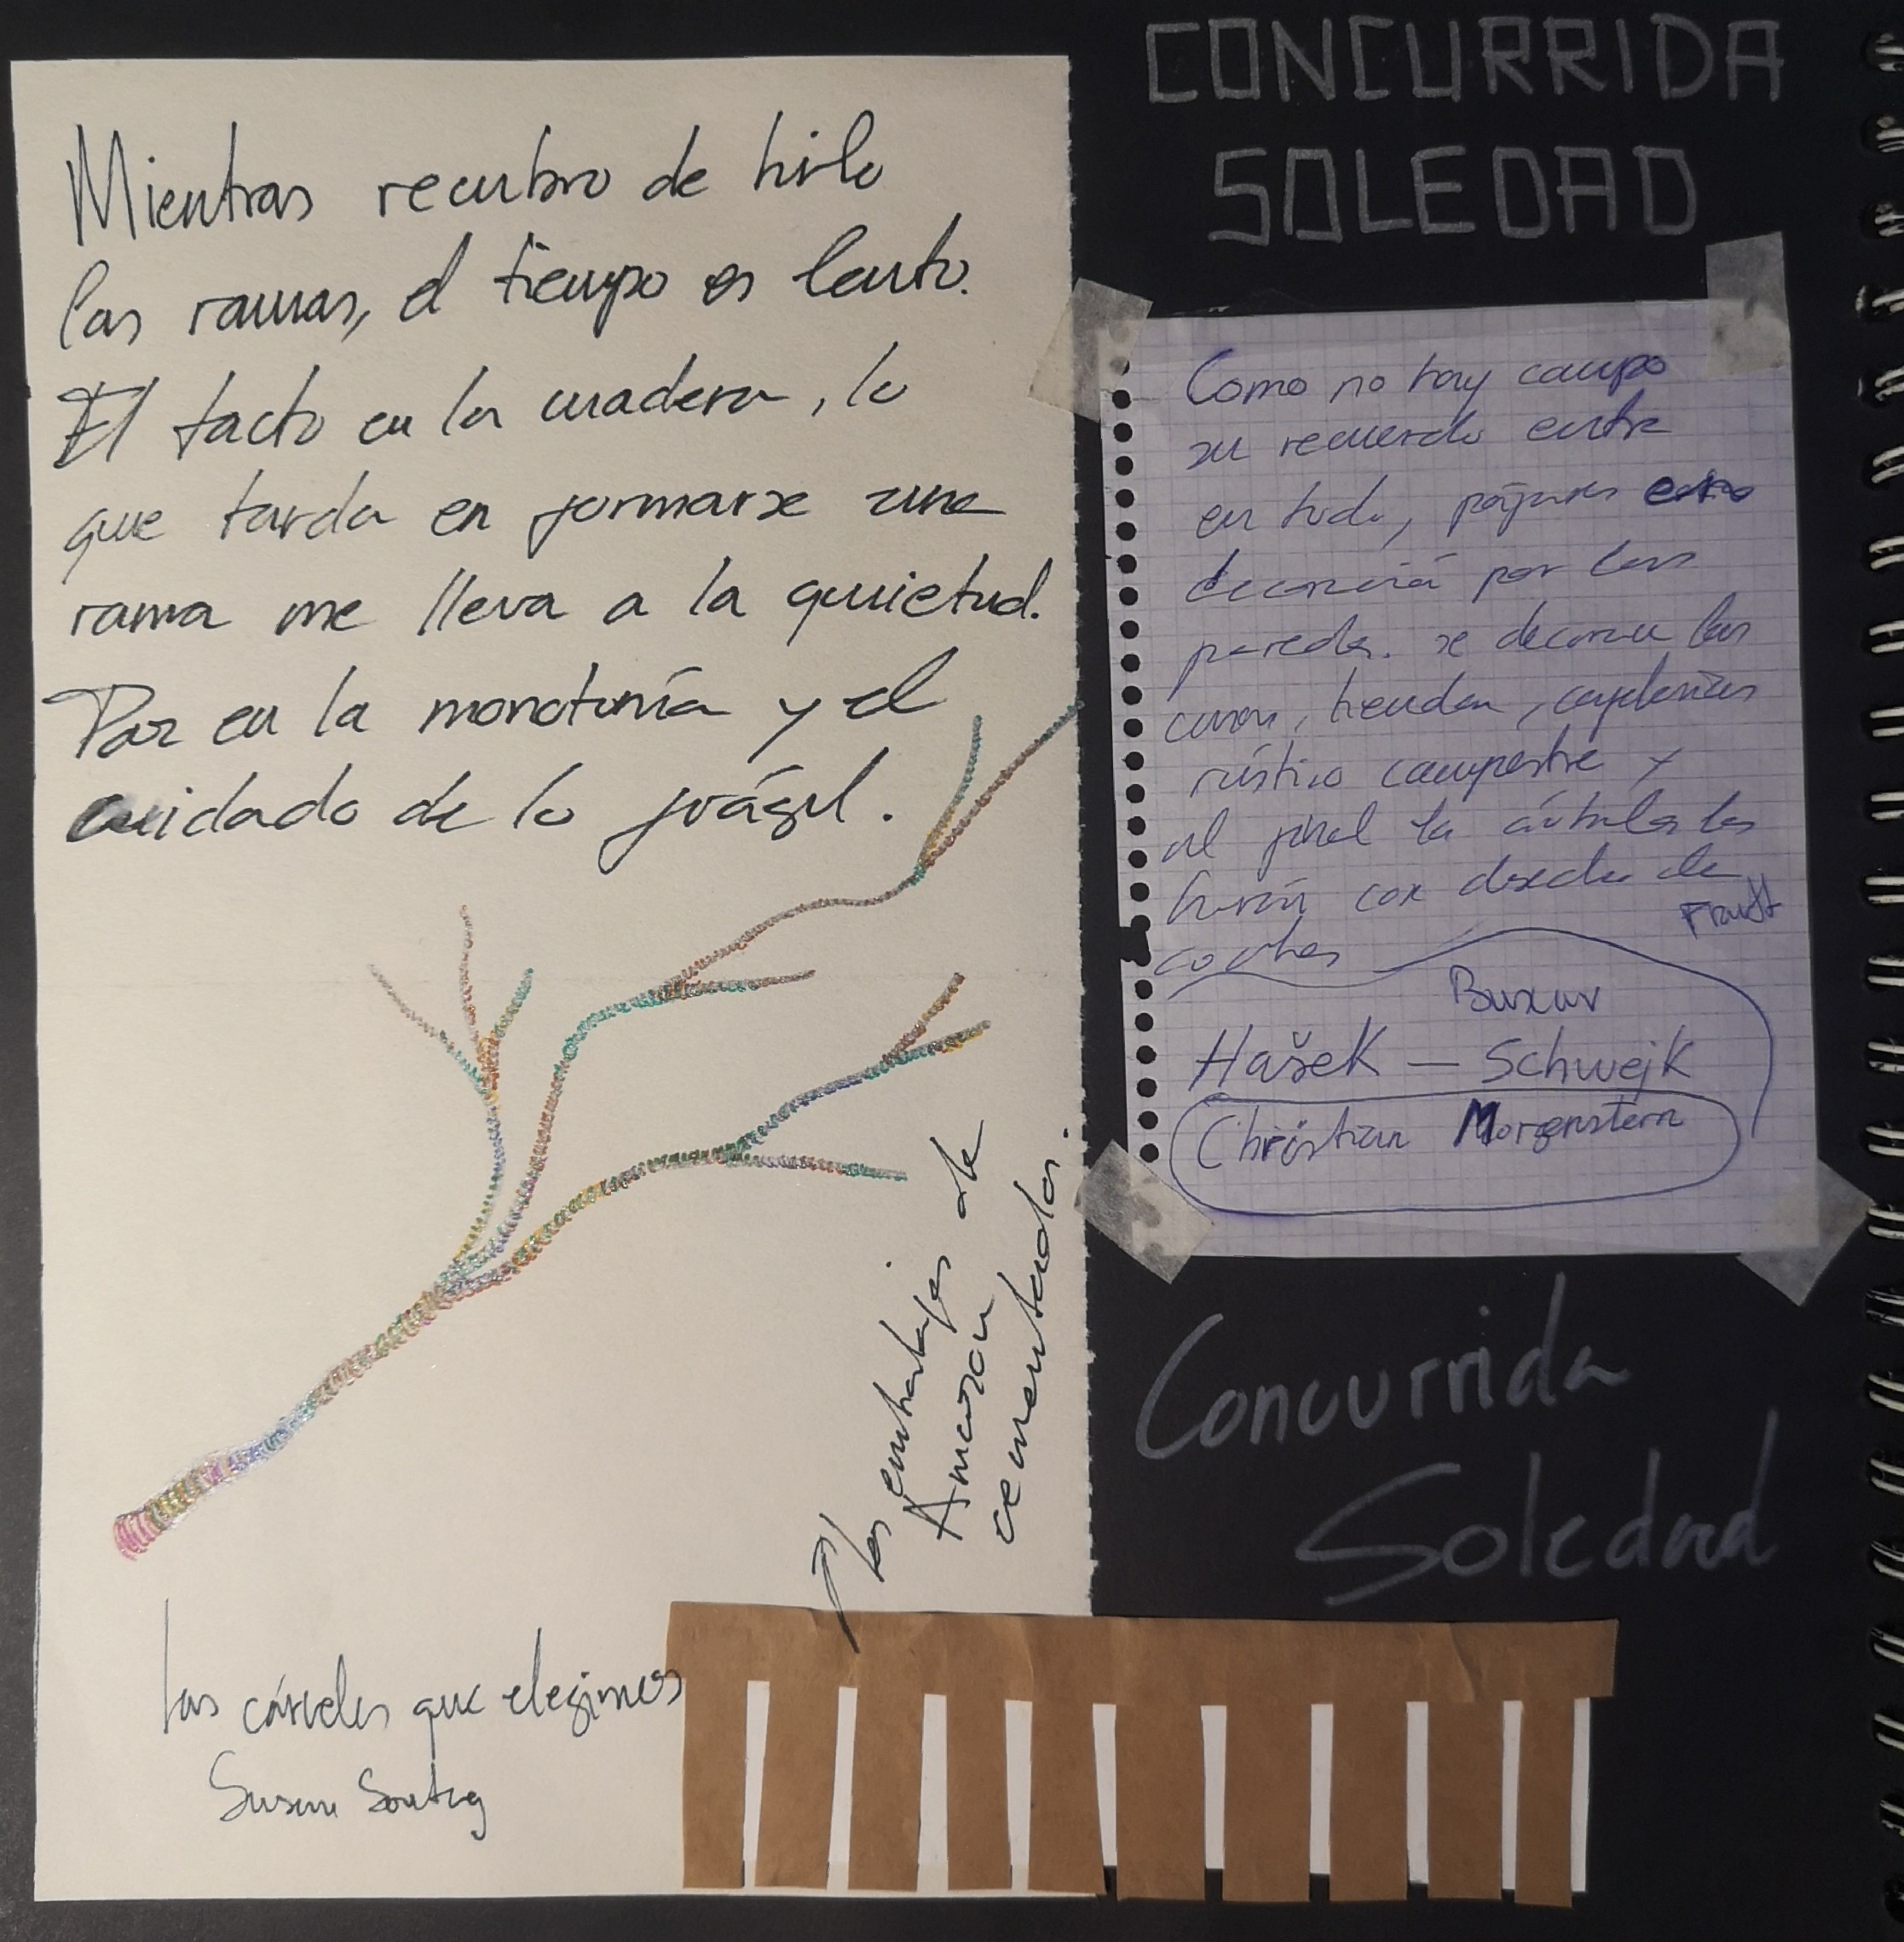 Mientras recubro de hilo
las ramas, el tiempo es lento.
El tacto en la madera, lo
que tarda en formarse una
rama me lleva a la quietud.
Paz en la monotonía y el
cuidado de lo frágil.
Los embalajes de
Amazon
cementados.
Las cárceles que elegimos
Susan Sontag
CONCURRIDA
SOLEDAD
Como no hay campo
su recuerdo entra
en todo, pájaros
decorará por las
paredes. se decoran las
casas, tiendas, cafeterías
rústico campestre y
al final la árboles los
harán con desecho de
coches
Buscar
Hašek — Schwejk
Christian Morgenstern
Concurrida
Soledad